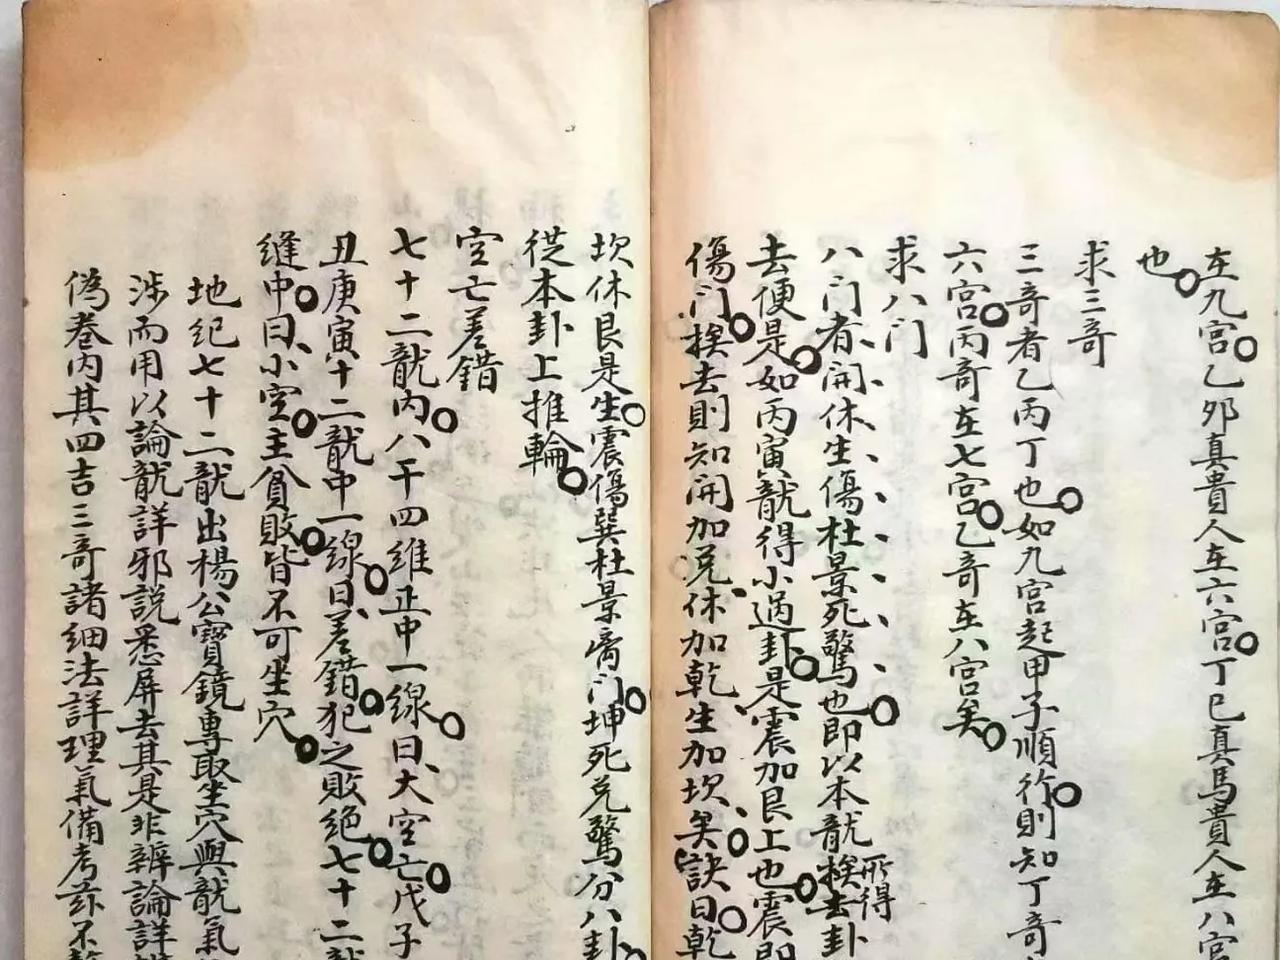 在九宮乙邜真貴人在六宮丁巳真馬貴人在八宮
也
求三奇
三奇者乙丙丁也如九宮起甲子順行則知丁奇
六宮丙奇在七宮乙奇在八宮矣
求八门
八门者開休生傷杜景死驚也即以本龍挨去卦
所得
去便是如丙寅龍得小過卦是震加艮上也震即
傷门挨去則知開加兌休加乾生加坎矣訣曰乾
坎休艮是生震傷巽杜景离门坤死兌驚分八卦
從本卦上推輪
空亡差錯
七十二龍内八干四維正中一線曰大空亡戊子
丑庚寅十二龍中一線曰差錯犯之敗絕七十二龍
縫中曰小空主貧敗皆不可坐穴
地紀七十二龍出楊公寶鏡專取坐穴與龍氣
涉而用以論龍詳邪説悉屏去其是非辨論詳
偽卷内其四吉三奇諸細法詳理氣備考茲不